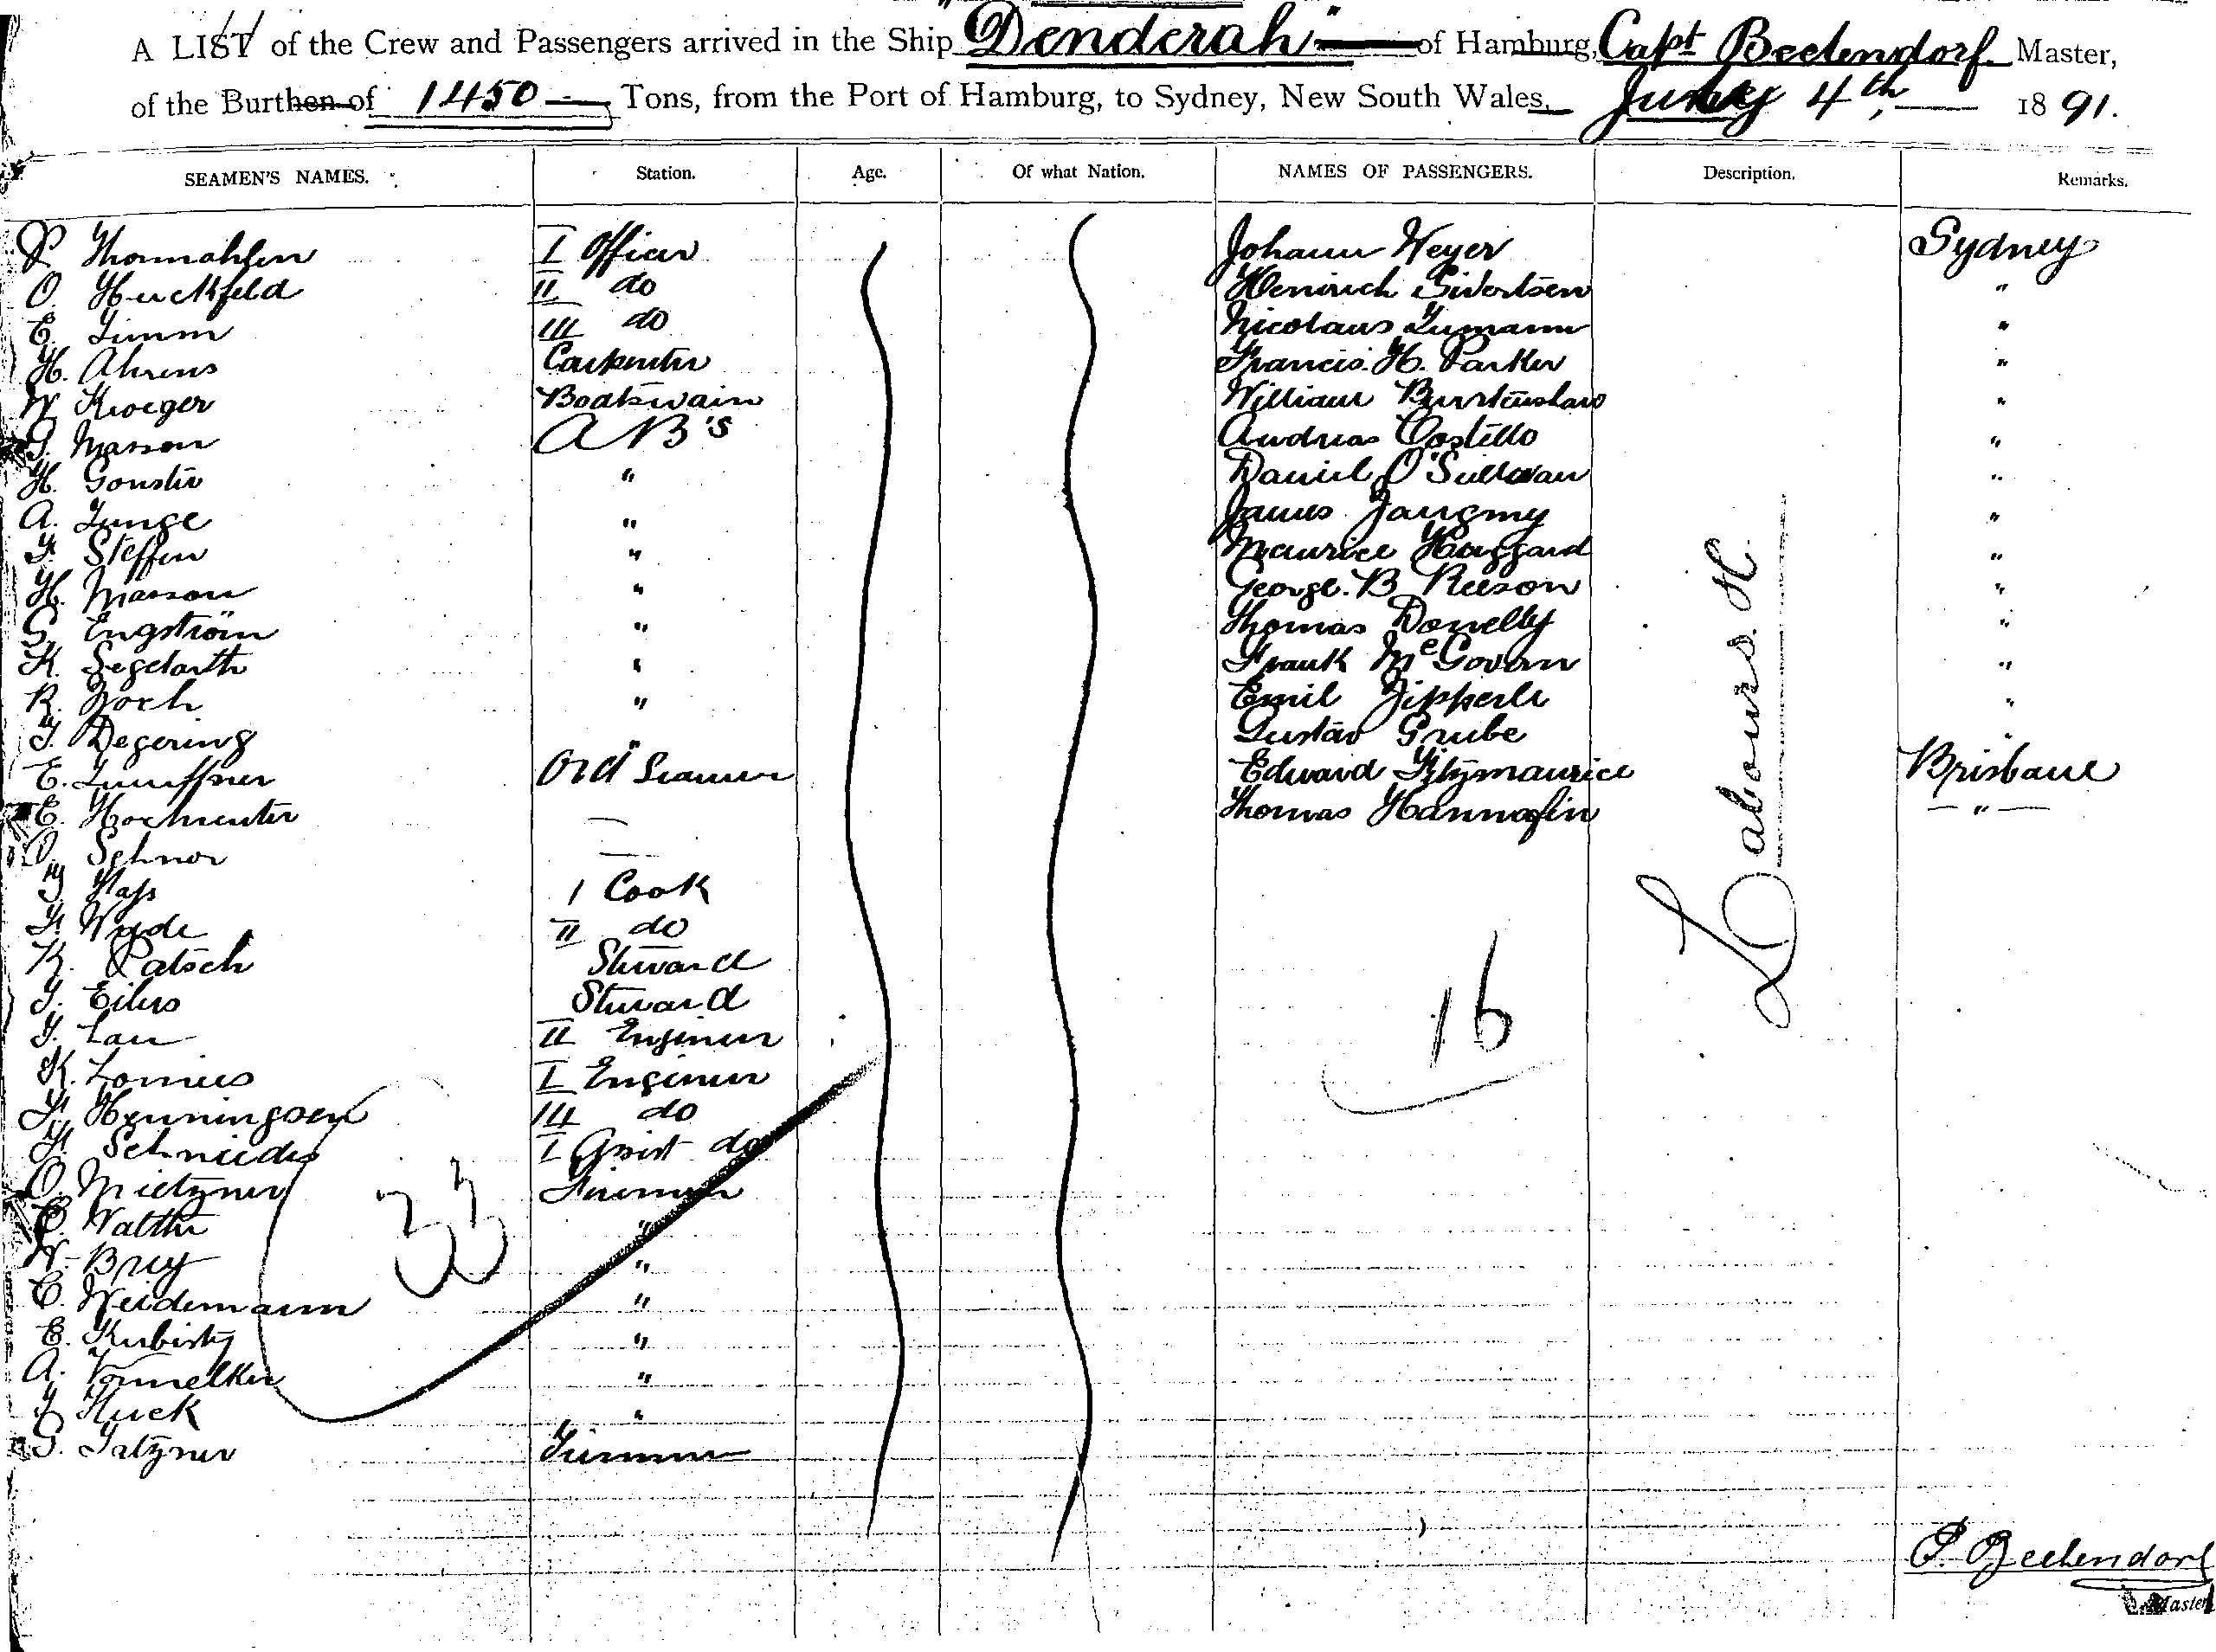 A LIST of the Crew and Passengers arrived in the Ship "Denderah" of Hamburg, Capt Beelendorf Master,
of the Burthen of 1450 Tons, from the Port of Hamburg, to Sydney, New South Wales, 4th, 1891.
SEAMEN'S NAMES. Station. Age. Of what Nation. NAMES OF PASSENGERS. Description. Remarks.
P Thormahlen I Officer Johann Meyer Sydney
O. Huckfeld II do Heninrich Sivertsen "
E. Timm III do Nicolaus Tumann "
H. Ahrens Carpenter Francis. H. Parker "
W Kroeger Boatswain William Burstenshaw "
Marson A B's Andreas Costello "
H. " Daniel O'Sullivan "
A. Junge " James "
Steffen " Maurice Haggard "
H. Marson " George. B Reeson "
Engström " Thomas Donelly "
K. Segelarth " Frank McGovern "
R. " Emil Zipperle "
J. Degering " Gustav Grube "
E. Ord Seamen Edward Fitzmaurice Brisbane
E. Thomas Hannafin "
Schnor
I Cook
II do
K. Patsch Steward
J. Eilers Steward
J. Lau II Engineer
K. Lorries I Engineer
Henningsen III do
Schnieder I Assist do
O. Mietzner Firemen
Walther "
W. Brey "
C. Weidemann "
E. Kubisty "
A. "
Huck "
Tatzner Firemen
33
16
Labours. H.
P. Beelendorf
Master